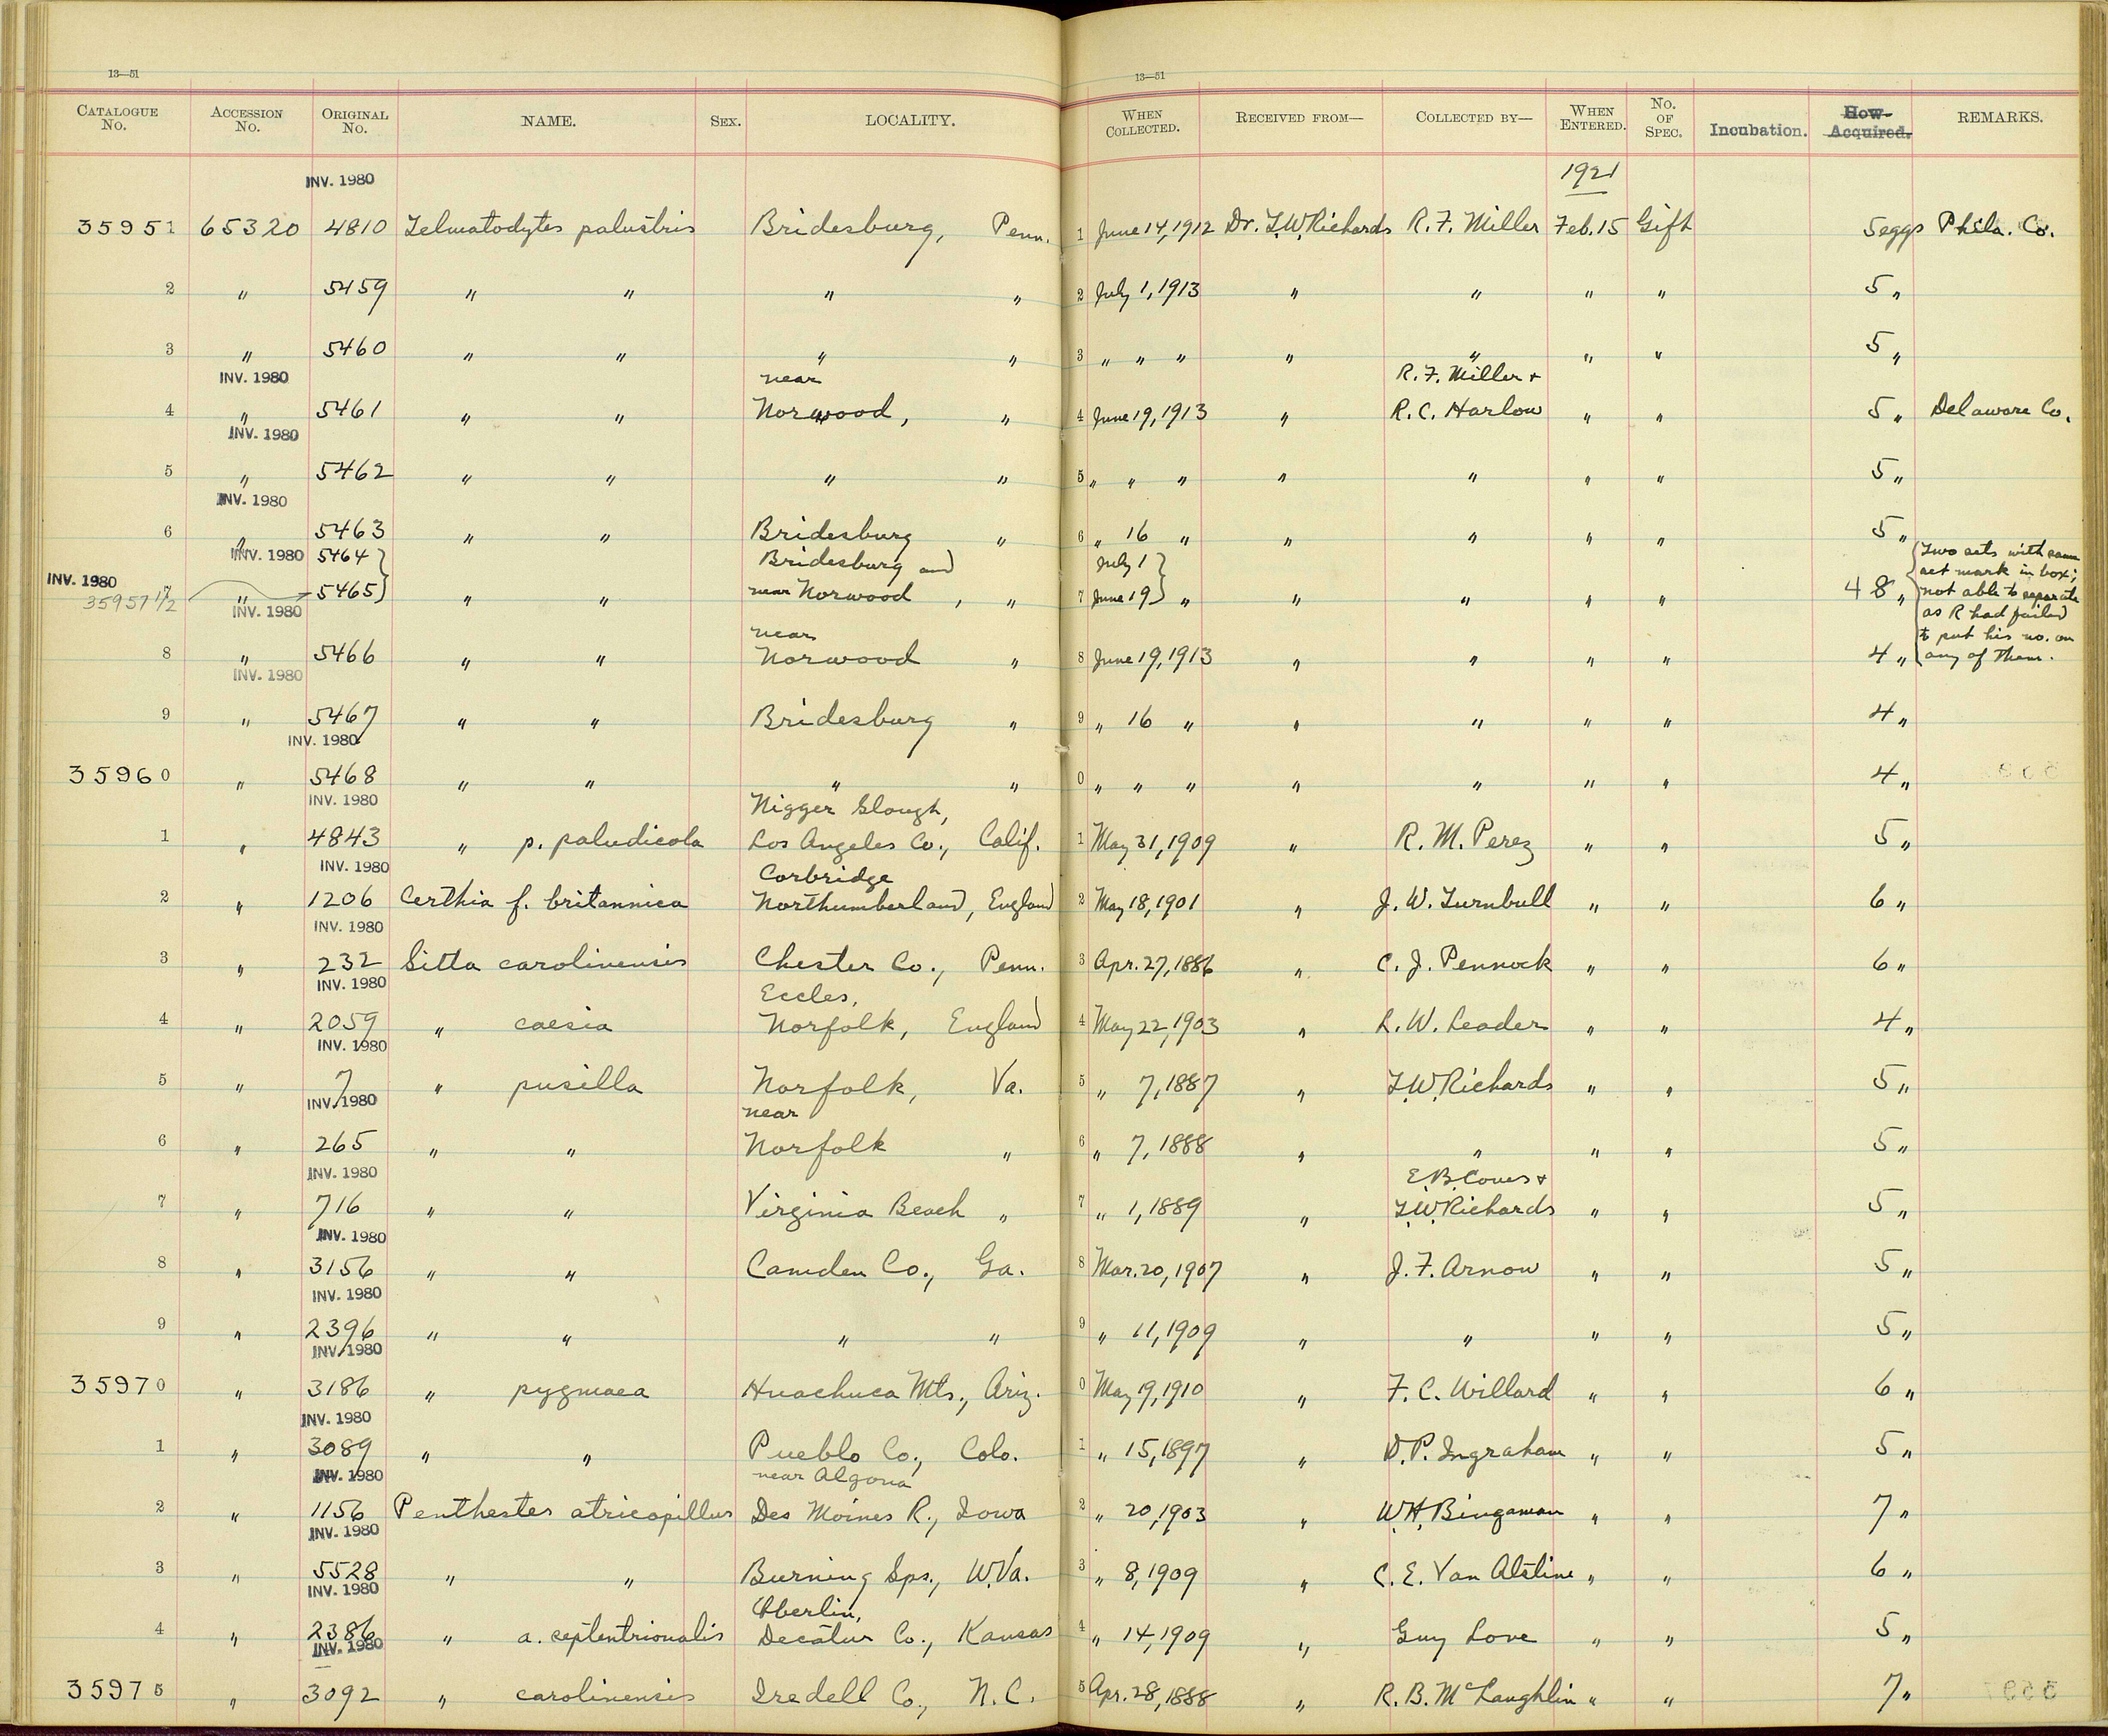 13—51
13—51
CATALOGUE No. ACCESSION No. ORIGINAL No. NAME. SEX. LOCALITY. WHEN COLLECTED. RECEIVED FROM— COLLECTED BY— WHEN ENTERED. No. OF SPEC. Incubation. How Acquired. REMARKS.
INV. 1980 1921
35951 65320 4810 Telmatodytes palustris Bridesburg, Penn. 1 June 14, 1912 Dr. T.W. Richards R. F. Miller Feb. 15 Gift 5 eggs Phila. Co.
2 " 5459 " " " " 2 July 1, 1913 " " " " 5 "
3 " 5460 " " " " 3 " " " " " " " 5 "
INV. 1980 near R. F. Miller +
4 " 5461 " " Norwood, " 4 June 19, 1913 " R. C. Harlow " " 5 " Delaware Co.
INV. 1980
5 " 5462 " " " " 5 " " " " " " " 5 "
INV. 1980
6 " 5463 " " Bridesburg " 6 " 16 " " " " " 5 "
INV. 1980 5464 } Bridesburg and July 1 } Two sets with same
INV. 1980 set mark in box;
7 " 5465 } " " near Norwood, " 7 June 19 } " " " " " 4 8 " not able to separate
35957 1/2 INV. 1980 as R had failed
near to put his no. on
8 " 5466 " " Norwood " 8 June 19, 1913 " " " " 4 " any of them.
INV. 1980
9 " 5467 " " Bridesburg " 9 " 16 " " " " " 4 "
INV. 1980
35960 " 5468 " " " " 0 " " " " " " " 4 "
INV. 1980 Nigger Slough,
1 " 4843 " p. paludicola Los Angeles Co., Calif. 1 May 31, 1909 " R. M. Perez " " 5 "
INV. 1980 Corbridge
2 " 1206 Certhia f. britannica Northumberland, England 2 May 18, 1901 " J. W. Turnbull " " 6 "
INV. 1980
3 " 232 Sitta carolinensis Chester Co., Penn. 3 Apr. 27, 1886 " C. J. Pennock " " 6 "
INV. 1980 Eccles,
4 " 2059 " caesia Norfolk, England 4 May 22, 1903 " R. W. Leader " " 4 "
INV. 1980
5 " 7 " pusilla Norfolk, Va. 5 " 7, 1887 " T.W. Richards " " 5 "
INV. 1980 near
6 " 265 " " Norfolk " 6 " 7, 1888 " " " " 5 "
INV. 1980 E. B. Coues +
7 " 716 " " Virginia Beach " 7 " 1, 1889 " T.W. Richards " " 5 "
INV. 1980
8 " 3156 " " Camden Co., Ga. 8 Mar. 20, 1907 " J. F. Arnow " " 5 "
INV. 1980
9 " 2396 " " " " 9 " 11, 1909 " " " " 5 "
INV. 1980
35970 " 3186 " pygmaea Huachuca Mts., Ariz. 0 May 19, 1910 " F. C. Willard " " 6 "
INV. 1980
1 " 3089 " " Pueblo Co., Colo. 1 " 15, 1897 " D. P. Ingraham " " 5 "
INV. 1980 near Algona
2 " 1156 Penthestes atricapillus Des Moines R., Iowa 2 " 20, 1903 " W. H. Bingaman " " 7 "
INV. 1980
3 " 5528 " " Burning Sps., W.Va. 3 " 8, 1909 " C. E. Van Alstine " " 6 "
INV. 1980 Oberlin,
4 " 2386 " a. septentrionalis Decatur Co., Kansas 4 " 14, 1909 " Guy Love " " 5 "
INV. 1980
35975 " 3092 " carolinensis Iredell Co., N.C. 5 Apr. 28, 1888 " R. B. McLaughlin " " 7 "